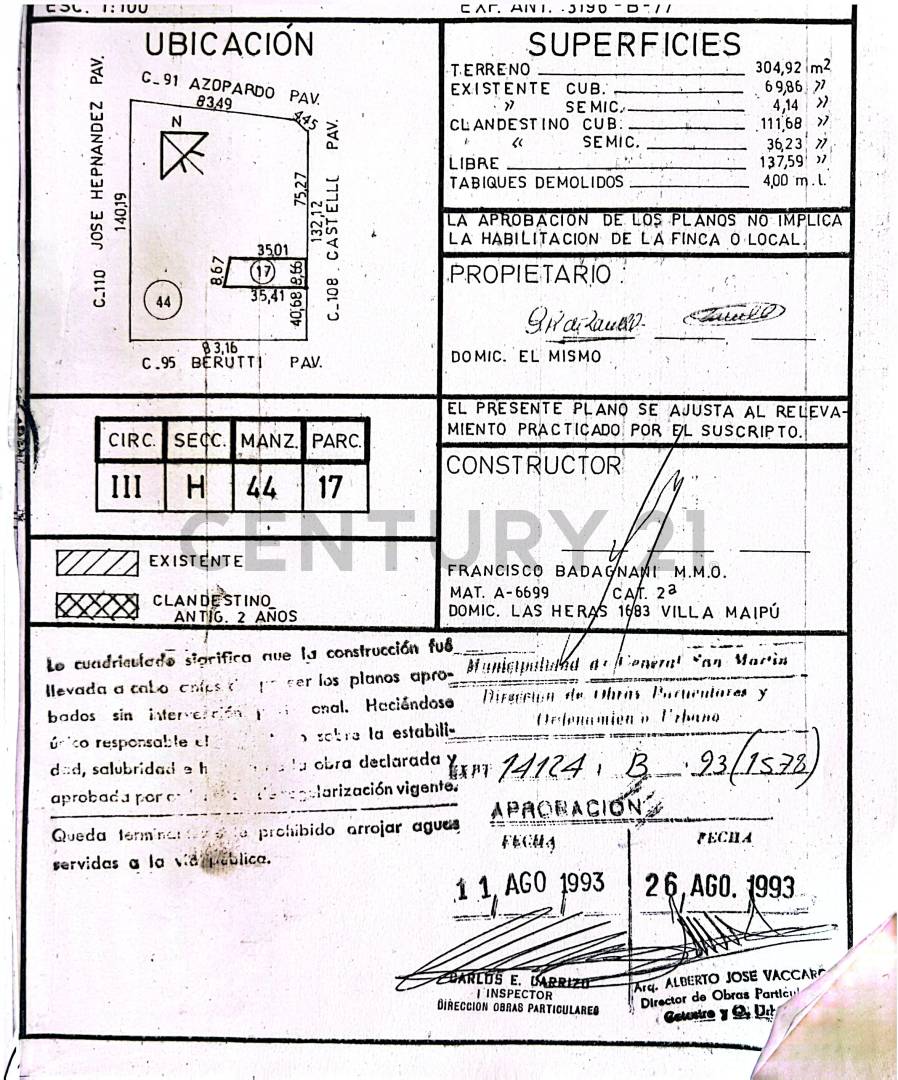 ESC. 1:100
EXP. ANT. 3196-B-77
UBICACIÓN
C-91 AZOPARDO PAV.
83,49
4,45
C-110 JOSE HEPNANDEZ PAV.
140,19
N
75,27
132,12
C-108 CASTELLI PAV.
35,01
8,67
17
8,66
35,41
40,68
44
83,16
C-95 BERUTTI PAV.
CIRC. SECC. MANZ. PARC.
III H 44 17
EXISTENTE
CLANDESTINO
ANTIG. 2 AÑOS
SUPERFICIES
TERRENO 304,92 m2
EXISTENTE CUB. 69,86 "
" SEMIC. 4,14 "
CLANDESTINO CUB. 111,68 "
" " SEMIC. 36,23 "
LIBRE 137,59 "
TABIQUES DEMOLIDOS 4,00 m.l.
LA APROBACION DE LOS PLANOS NO IMPLICA
LA HABILITACION DE LA FINCA O LOCAL.
PROPIETARIO:
DOMIC. EL MISMO
EL PRESENTE PLANO SE AJUSTA AL RELEVA-
MIENTO PRACTICADO POR EL SUSCRIPTO.
CONSTRUCTOR
FRANCISCO BADAGNANI M.M.O.
MAT. A-6699 CAT. 2ª
DOMIC. LAS HERAS 1683 VILLA MAIPÚ
CENTURY 21
Lo cuadriculado significa que la construcción fué
llevada a cabo ser los planos apro-
bados sin intervención onal. Haciéndose
único responsable el sobre la estabili-
dad, salubridad e h la obra declarada y
aprobada por larización vigente.
Queda prohibido arrojar aguas
servidas a la vía pública.
Municipalidad de General San Martín
Dirección de Obras Particulares y
Ordenamiento Urbano
EXPT 14124 . B . 93 (1578)
APROBACION
FECHA
11 AGO 1993
CARLOS E. CARRIZO
INSPECTOR
DIRECCION OBRAS PARTICULARES
FECHA
26 AGO. 1993
Arq. ALBERTO JOSE VACCARO
Director de Obras Particul
Catastro y O. Urb